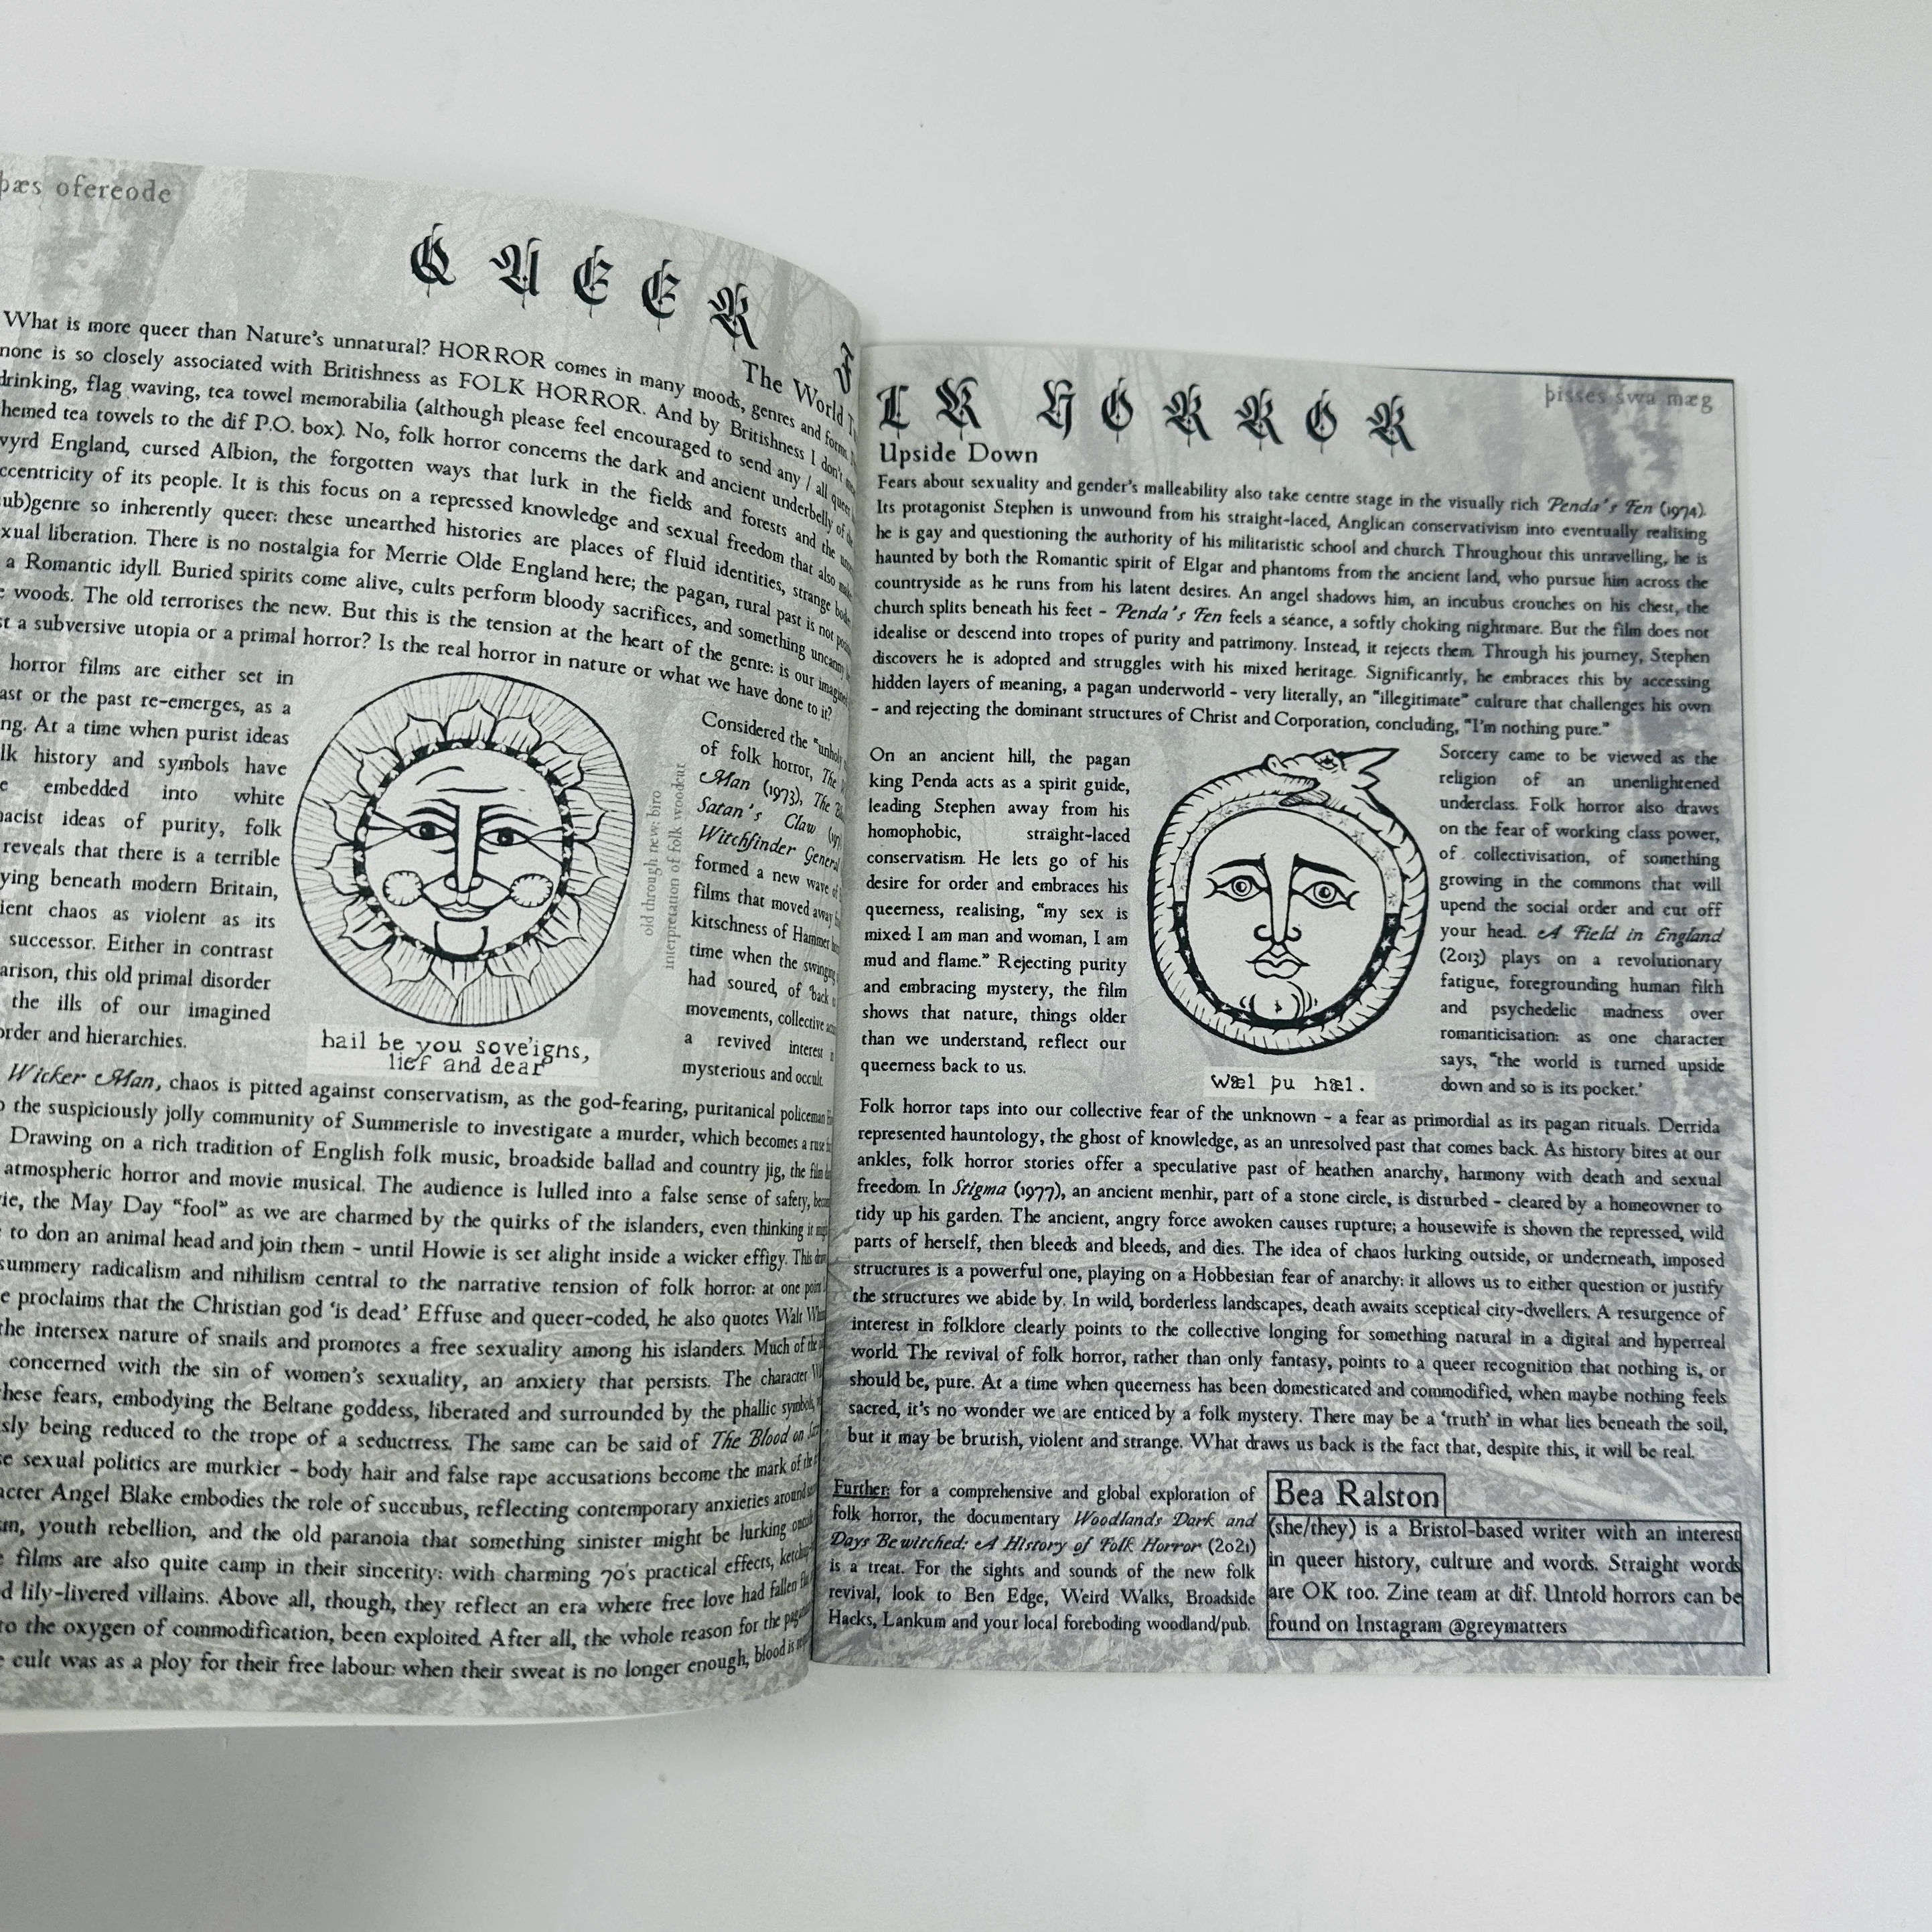 þæs ofereode
QUEER F
The World T
What is more queer than Nature's unnatural? HORROR comes in many moods, genres and forms,
none is so closely associated with Britishness as FOLK HORROR. And by Britishness I don't
drinking, flag waving, tea towel memorabilia (although please feel encouraged to send any / all queer
themed tea towels to the dif P.O. box). No, folk horror concerns the dark and ancient underbelly of
wyrd England, cursed Albion, the forgotten ways that lurk in the fields and forests and the
ccentricity of its people. It is this focus on a repressed knowledge and sexual freedom that also
ub)genre so inherently queer: these unearthed histories are places of fluid identities, strange
xual liberation. There is no nostalgia for Merrie Olde England here; the pagan, rural past is not
a Romantic idyll. Buried spirits come alive, cults perform bloody sacrifices, and something uncanny
woods. The old terrorises the new. But this is the tension at the heart of the genre: is our
st a subversive utopia or a primal horror? Is the real horror in nature or what we have done to it?
horror films are either set in
ast or the past re-emerges, as a
ng. At a time when purist ideas
lk history and symbols have
embedded into white
macist ideas of purity, folk
reveals that there is a terrible
ying beneath modern Britain,
ient chaos as violent as its
successor. Either in contrast
arison, this old primal disorder
the ills of our imagined
order and hierarchies.
hail be you sove'igns,
lief and dear
old through new: biro
interpretation of folk woodcut
Considered the "unholy
of folk horror, The
Man (1973), The
Satan's Claw
Witchfinder General
formed a new wave of
films that moved away
kitschness of Hammer
time when the swinging
had soured, of 'back
movements, collective
a revived interest
mysterious and occult.
Wicker Man, chaos is pitted against conservatism, as the god-fearing, puritanical policeman
o the suspiciously jolly community of Summerisle to investigate a murder, which becomes a ruse
Drawing on a rich tradition of English folk music, broadside ballad and country jig, the film
atmospheric horror and movie musical. The audience is lulled into a false sense of safety,
ie, the May Day "fool" as we are charmed by the quirks of the islanders, even thinking it
to don an animal head and join them - until Howie is set alight inside a wicker effigy. This
summery radicalism and nihilism central to the narrative tension of folk horror: at one point
e proclaims that the Christian god 'is dead.' Effuse and queer-coded, he also quotes Walt
the intersex nature of snails and promotes a free sexuality among his islanders. Much of the
concerned with the sin of women's sexuality, an anxiety that persists. The character
hese fears, embodying the Beltane goddess, liberated and surrounded by the phallic symbols,
sly being reduced to the trope of a seductress. The same can be said of The Blood on
e sexual politics are murkier - body hair and false rape accusations become the mark of the
acter Angel Blake embodies the role of succubus, reflecting contemporary anxieties around
sm, youth rebellion, and the old paranoia that something sinister might be lurking
films are also quite camp in their sincerity: with charming 70's practical effects,
d lily-livered villains. Above all, though, they reflect an era where free love had fallen
to the oxygen of commodification, been exploited. After all, the whole reason for the
cult was as a ploy for their free labour: when their sweat is no longer enough, blood is
þisses swa mæg
LK HORROR
Upside Down
Fears about sexuality and gender's malleability also take centre stage in the visually rich Penda's Fen (1974).
Its protagonist Stephen is unwound from his straight-laced, Anglican conservativism into eventually realising
he is gay and questioning the authority of his militaristic school and church. Throughout this unravelling, he is
haunted by both the Romantic spirit of Elgar and phantoms from the ancient land, who pursue him across the
countryside as he runs from his latent desires. An angel shadows him, an incubus crouches on his chest, the
church splits beneath his feet - Penda's Fen feels a séance, a softly choking nightmare. But the film does not
idealise or descend into tropes of purity and patrimony. Instead, it rejects them. Through his journey, Stephen
discovers he is adopted and struggles with his mixed heritage. Significantly, he embraces this by accessing
hidden layers of meaning, a pagan underworld - very literally, an "illegitimate" culture that challenges his own
- and rejecting the dominant structures of Christ and Corporation, concluding, "I'm nothing pure."
On an ancient hill, the pagan
king Penda acts as a spirit guide,
leading Stephen away from his
homophobic, straight-laced
conservatism. He lets go of his
desire for order and embraces his
queerness, realising, "my sex is
mixed: I am man and woman, I am
mud and flame." Rejecting purity
and embracing mystery, the film
shows that nature, things older
than we understand, reflect our
queerness back to us.
wæl þu hæl.
Sorcery came to be viewed as the
religion of an unenlightened
underclass. Folk horror also draws
on the fear of working class power,
of collectivisation, of something
growing in the commons that will
upend the social order and cut off
your head. A Field in England
(2013) plays on a revolutionary
fatigue, foregrounding human filth
and psychedelic madness over
romanticisation: as one character
says, "the world is turned upside
down and so is its pocket.'
Folk horror taps into our collective fear of the unknown - a fear as primordial as its pagan rituals. Derrida
represented hauntology, the ghost of knowledge, as an unresolved past that comes back. As history bites at our
ankles, folk horror stories offer a speculative past of heathen anarchy, harmony with death and sexual
freedom. In Stigma (1977), an ancient menhir, part of a stone circle, is disturbed - cleared by a homeowner to
tidy up his garden. The ancient, angry force awoken causes rupture; a housewife is shown the repressed, wild
parts of herself, then bleeds and bleeds, and dies. The idea of chaos lurking outside, or underneath, imposed
structures is a powerful one, playing on a Hobbesian fear of anarchy: it allows us to either question or justify
the structures we abide by. In wild, borderless landscapes, death awaits sceptical city-dwellers. A resurgence of
interest in folklore clearly points to the collective longing for something natural in a digital and hyperreal
world. The revival of folk horror, rather than only fantasy, points to a queer recognition that nothing is, or
should be, pure. At a time when queerness has been domesticated and commodified, when maybe nothing feels
sacred, it's no wonder we are enticed by a folk mystery. There may be a 'truth' in what lies beneath the soil,
but it may be brutish, violent and strange. What draws us back is the fact that, despite this, it will be real.
Further: for a comprehensive and global exploration of
folk horror, the documentary Woodlands Dark and
Days Bewitched: A History of Folk Horror (2021)
is a treat. For the sights and sounds of the new folk
revival, look to Ben Edge, Weird Walks, Broadside
Hacks, Lankum and your local foreboding woodland/pub.
Bea Ralston
(she/they) is a Bristol-based writer with an interest
in queer history, culture and words. Straight words
are OK too. Zine team at dif. Untold horrors can be
found on Instagram @greymatters